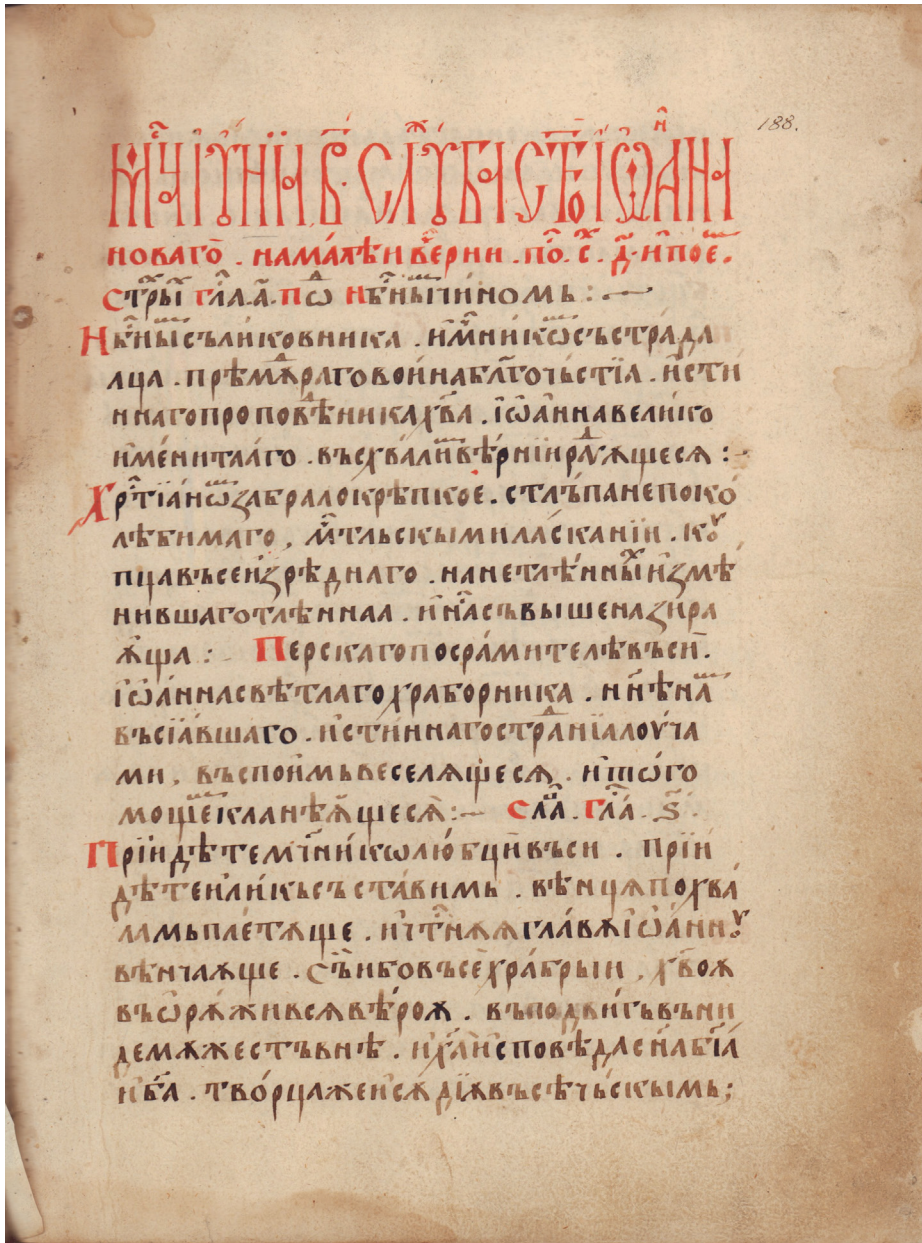 188.
мⷭ҇ца їꙋнїа в҃. слꙋжⷠба ст҃го їѡанⷩа
новаго. на малѣи веⷱ҇рни. поⷭ҇. сⷯ. д҃. и поеⷨ.
стрⷯы глаⷭ҇. а҃. поⷣ нбⷭ҇ныⷨ чиномь :
Нбⷭ҇ныⷨ съликовника. и мнⷱ҇никѡⷨ съ страда
лца. прѣмⷣраго воина бл҃гочьстїа. исти
ннаго проповѣⷣника хв҃а. їѡанна велико
именитааго. въсхвалиⷨ вѣрнїи раⷣꙋѫщесѧ :
Хрⷭ҇тїанѡⷨ забрало крѣпкое. стлъпа непоко
лѣбимаго, мⷱ҇тльскыми ласканїи. кꙋ
пца въсеизрѣднаго. на нетлѣнныⷯ измѣ
нившаго тлѣннаа. и наⷭ҇ съвыше назира
ѫща : Перскаго посрамителѣ въси.
їѡанна свѣтлаго храборника. нн҃ѣ наⷨ
въсїавшаго. истиннаго страⷣнїа лоуча
ми, въспоимь веселѧщесѧ. и тѡго
мощеⷨ кланѣѫщесѧ :- слаⷡ. глаⷭ҇. ѕ҃.
Прїидѣте мⷱ҇николюбци въси. прїи
дѣте и ликь съставимь. вѣнцѧ похва
ламь плетѫще. и чтⷭ҇нѫѫ главѫ їѡаннꙋ
вѣнчаѫще. съи бо въсехрабрыи, хв҃оѫ
въѡрѫживсѧ вѣроѫ. въ подвигь въни
де мѫжестъвнѣ. и хⷭ҇а исповѣда сн҃а бж҃їа
и б҃а. творца же и съдїѫ въсѣчьскымь;